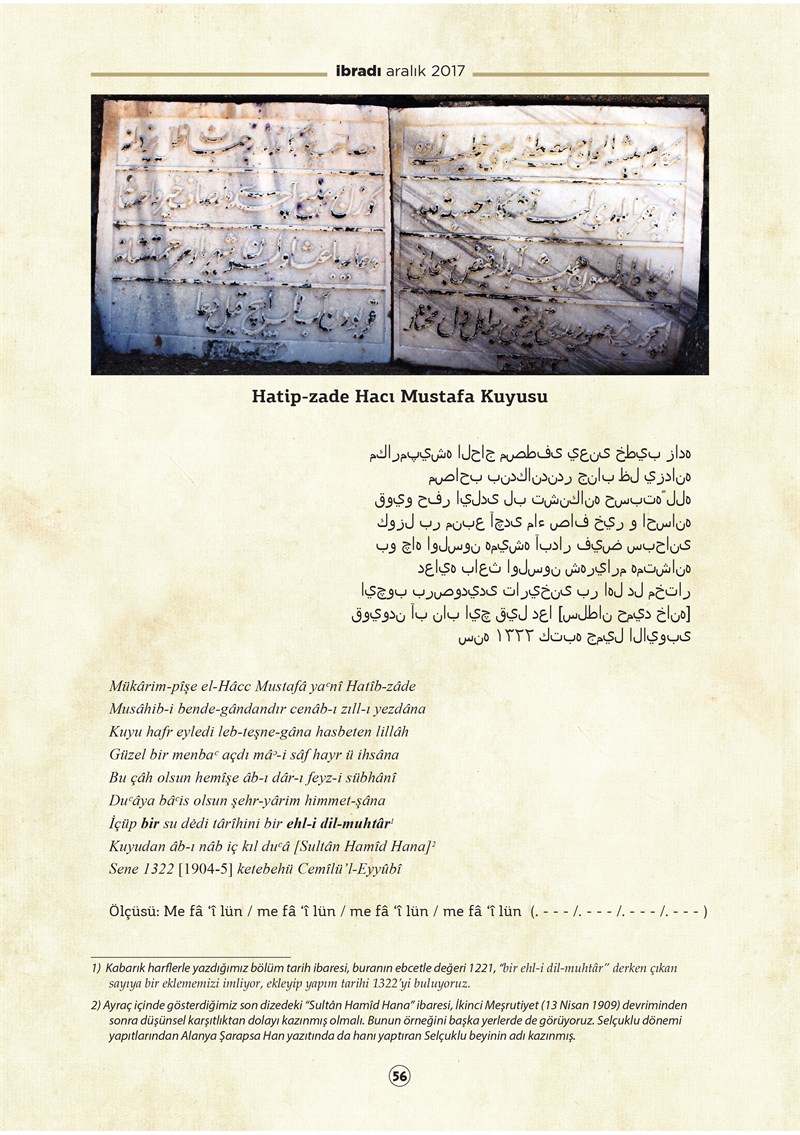 ibradı aralık 2017
Hatip-zade Hacı Mustafa Kuyusu
مكارمپيشه الحاج مصطفى يعنى خطيب زاده
مصاحب بندكاندندر جناب ظل يزدانه
قويو حفر ايلدى لب تشنكانه حسبتهً لله
كوزل بر منبع آچدى ماء صاف خير و احسانه
بو چاه اولسون هميشه آبدار فيض سبحانى
دعايه باعث اولسون شهريارم همتشانه
ايچوب برصوديدى تاريخنى بر اهل دل مختار
قويودن آب ناب ايچ قيل دعا [سلطان حميد خانه]
سنه ١٣٢٢ كتبه جميل الايوبى
Mükârim-pîşe el-Hâcc Mustafâ yaʿnî Hatîb-zâde
Musâhib-i bende-gândandır cenâb-ı zıll-ı yezdâna
Kuyu hafr eyledi leb-teşne-gâna hasbeten lillâh
Güzel bir menbaʿ açdı mâʾ-i sâf hayr ü ihsâna
Bu çâh olsun hemîşe âb-ı dâr-ı feyz-i sübhânî
Duʿâya bâʿis olsun şehr-yârim himmet-şâna
İçüp bir su dėdi târîhini bir ehl-i dil-muhtâr¹
Kuyudan âb-ı nâb iç kıl duʿâ [Sultân Hamîd Hana]²
Sene 1322 [1904-5] ketebehü Cemîlü’l-Eyyûbî
Ölçüsü: Me fâ ‘î lün / me fâ ‘î lün / me fâ ‘î lün / me fâ ‘î lün (. - - - /. - - - /. - - - /. - - - )
1) Kabarık harflerle yazdığımız bölüm tarih ibaresi, buranın ebcetle değeri 1221, “bir ehl-i dil-muhtâr” derken çıkan
sayıya bir eklememizi imliyor, ekleyip yapım tarihi 1322’yi buluyoruz.
2) Ayraç içinde gösterdiğimiz son dizedeki “Sultân Hamîd Hana” ibaresi, İkinci Meşrutiyet (13 Nisan 1909) devriminden
sonra düşünsel karşıtlıktan dolayı kazınmış olmalı. Bunun örneğini başka yerlerde de görüyoruz. Selçuklu dönemi
yapıtlarından Alanya Şarapsa Han yazıtında da hanı yaptıran Selçuklu beyinin adı kazınmış.
56